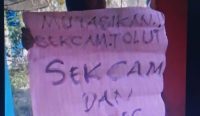 MUTASIKAN..
SEKCAM TOLUT
SEKCAM
DAN